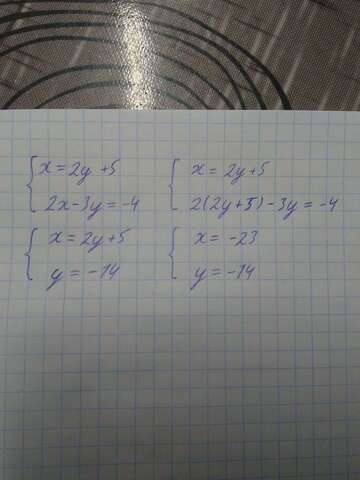 x = 2y + 5
2x - 3y = -4
x = 2y + 5
2(2y + 5) - 3y = -4
x = 2y + 5
y = -14
x = -23
y = -14